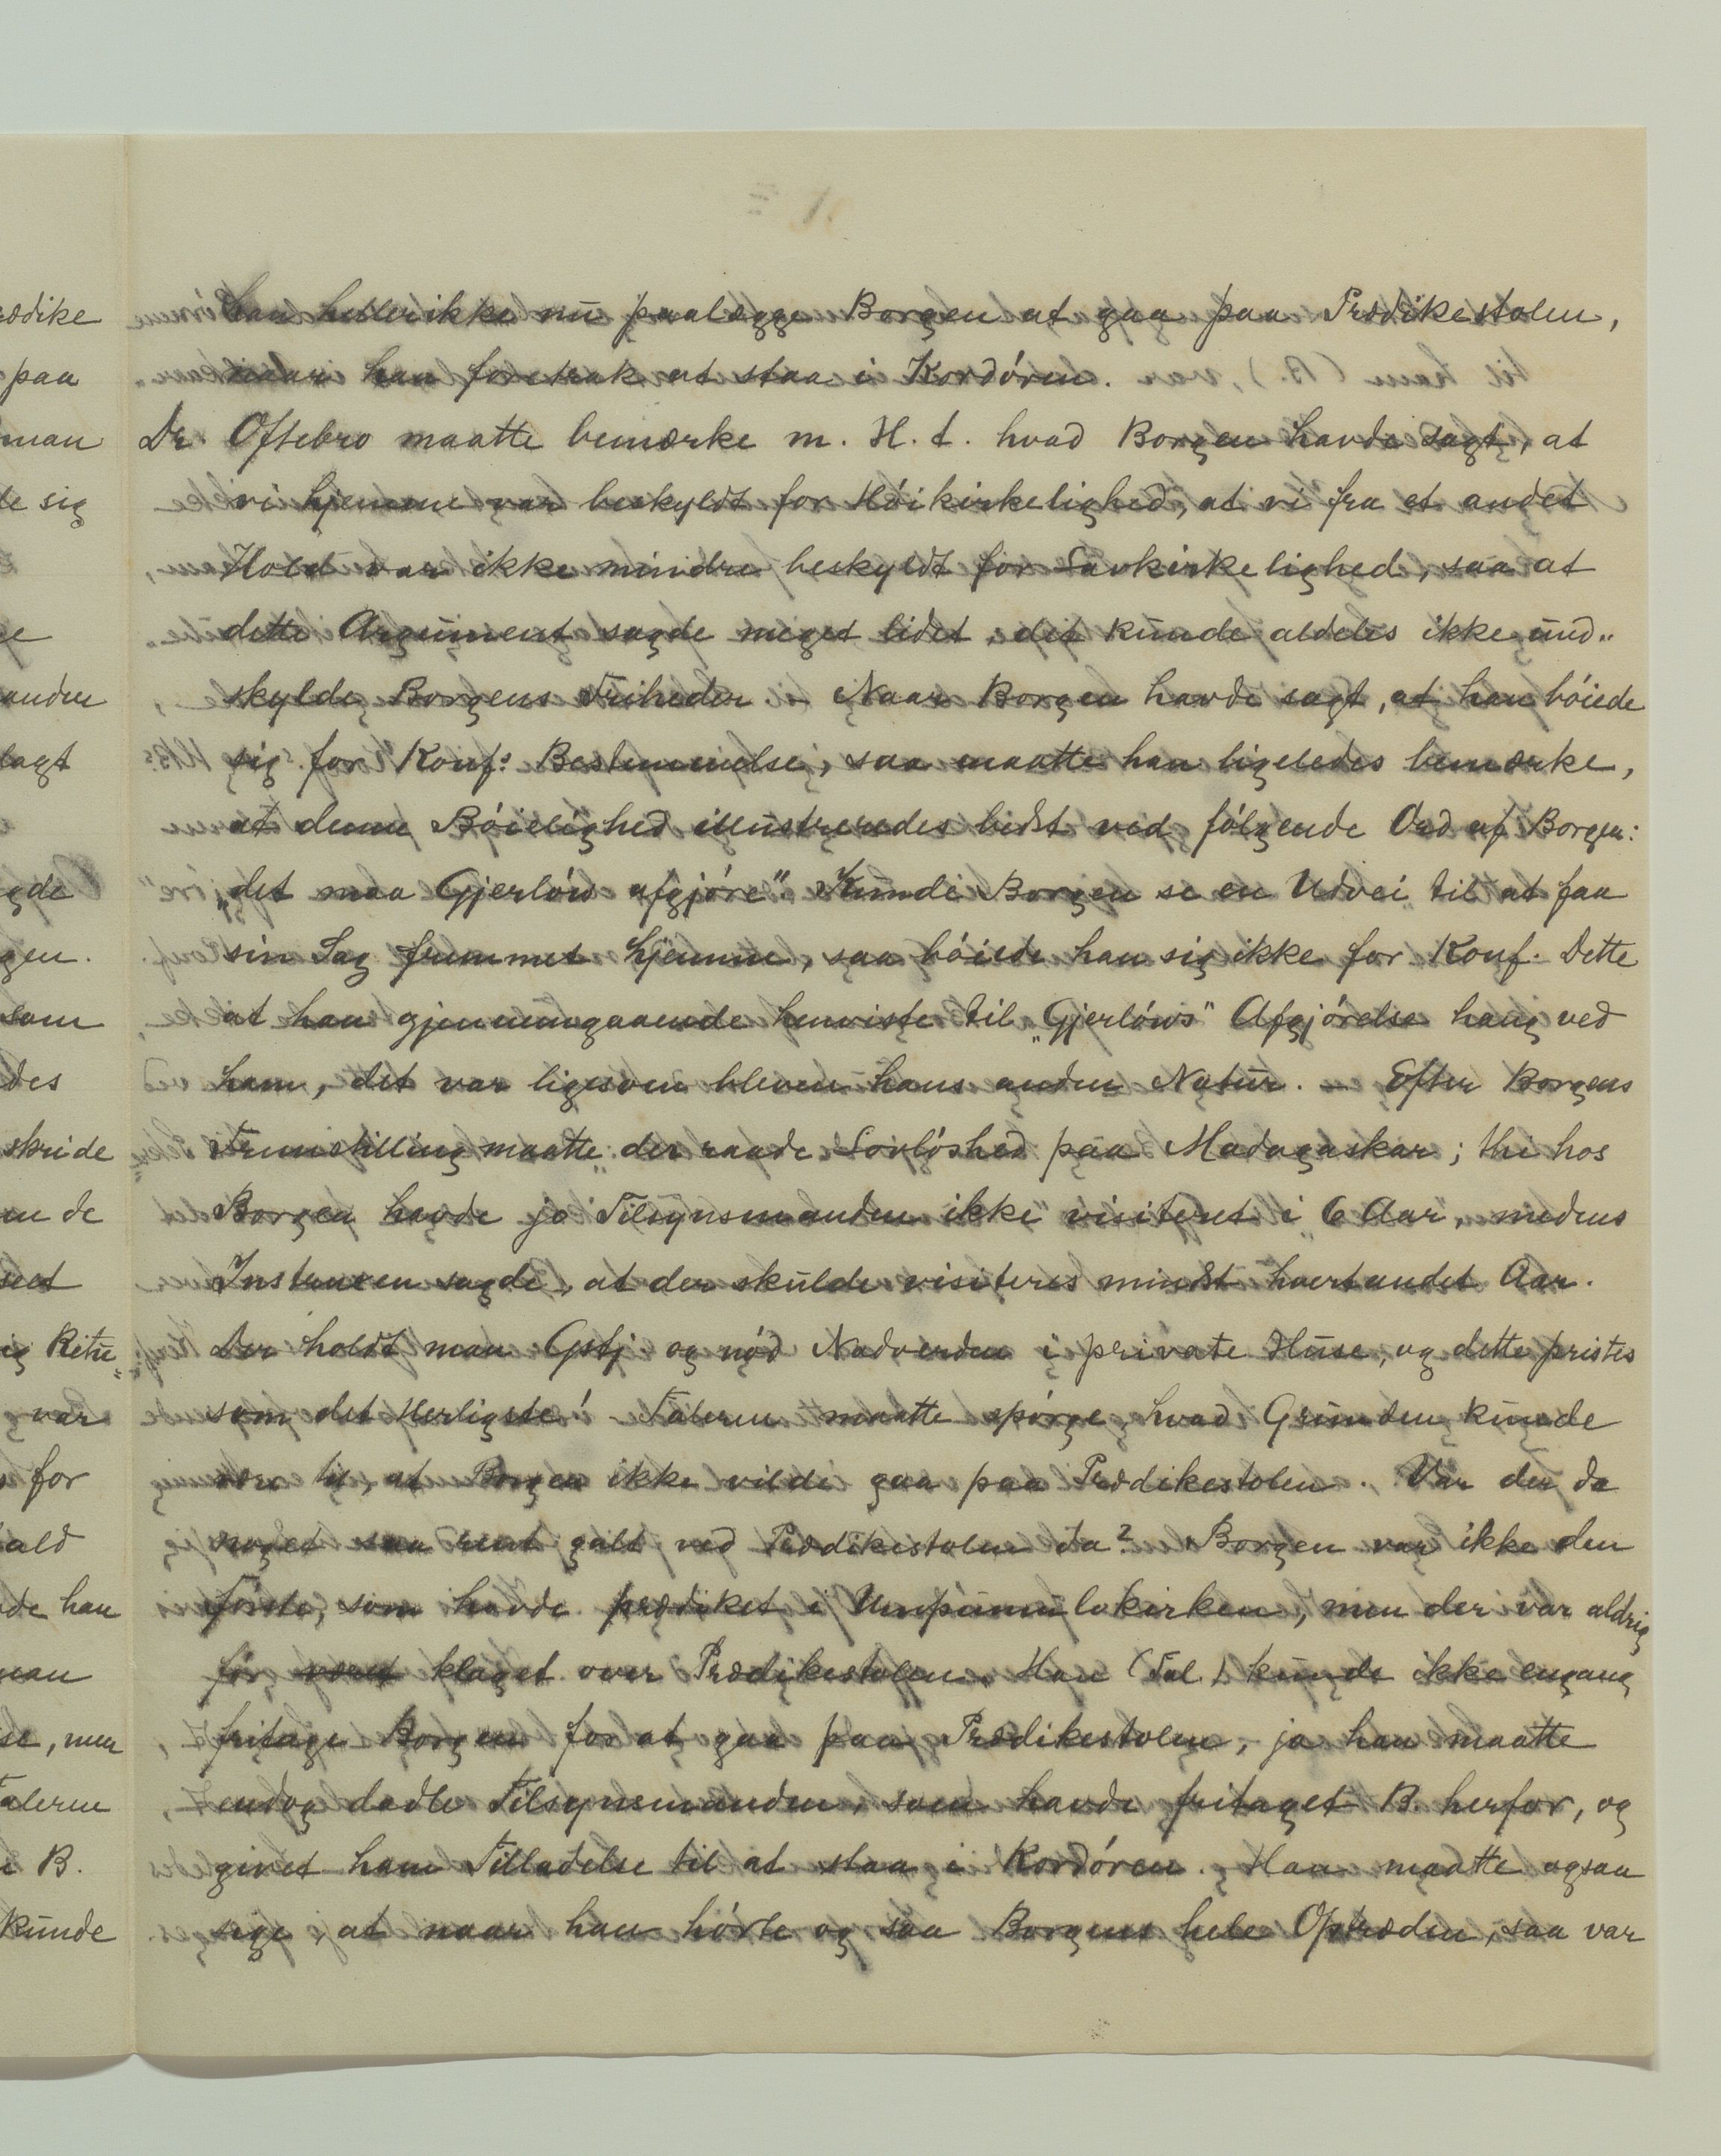 han heller ikke nu paalægge Borgen at gaa paa Prædikestolen,
naar han foretrak at staa i Kordóren.
Dr. Oftebro maatte bemærke m. H. t. hvad Borgen havde sagt, at
vi hjemme var beskyldt for Hóikirkelighed, at vi fra et andet
Hold var ikke mindre beskyldt for Lavkirkelighed, saa at
dette Argument sagde meget lidet, det kunde aldeles ikke und-
skylde Borgens Friheder. – Naar Borgen havde sagt, at han bóiede
sig for Konf: Bestemmelse, saa maatte han ligeledes bemærke,
at denne Bóielighed illustreredes bedst ved fólgende Ord af Borgen:
„det maa Gjerlów afgjóre". Kunde Borgen se en Udvei til at faa
sin Sag fremmet hjemme, saa bóiede han sig ikke for Konf. Dette
at han gjennemgaaende henviste til „Gjerlóws" Afgjórelse hang ved
ham, det var ligesom bleven hans anden Natur. – Efter Borgens
Fremstilling maatte der raade Lovlóshed paa Madagaskar; thi hos
Borgen havde jo Tilsynsmanden ikke visiteret i 6 Aar, medens
Instruxen sagde, at der skulde visiteres mindst hvert andet Aar.
Der holdt man Gstj og nód Nadverden i private Huse, og dette pristes
som det Herligste! Taleren maatte spórge, hvad Grunden kunde
være til, at Borgen ikke vilde gaa paa Prædikestolen. Var der da
noget saa rent galt ved Prædikestolen da? Borgen var ikke den
fórste, som havde prædiket i Umpumulokirken, men der var aldrig
fór været klaget over Prædikestolen. Han (Tal.) kunde ikke engang
fritage Borgen for at gaa paa Prædikestolen, ja han maatte
endog dadle Tilsynsmanden, som havde fritaget B. herfor, og
givet ham Tilladelse til at staa i Kordóren. Han maatte ogsaa
sige, at naar han hórte og saa Borgens hele Optræden, saa var